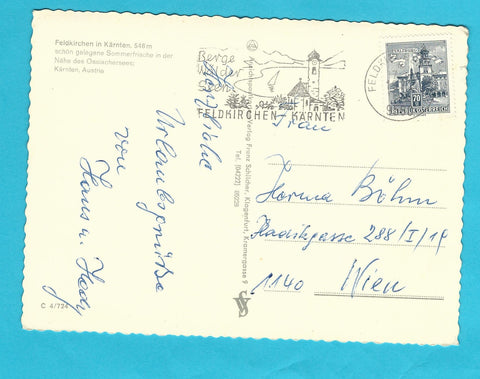 Feldkirchen in Kärnten, 548 m
schön gelegene Sommerfrische in der
Nähe des Ossiachersees;
Kärnten, Austria
Berge
Wälder
Seen
FELDKIRCHEN-KÄRNTEN
FELDK
SALZBURG
70
REPUBLIK ÖSTERREICH
Urlaubsgrüße
von
Hans u. Hedy
C 4/724
Verlag Franz Schilcher, Klagenfurt, Kramergasse 9
Tel. (04222)
Frau
Herma Böhm
288/I/19
1140 Wien